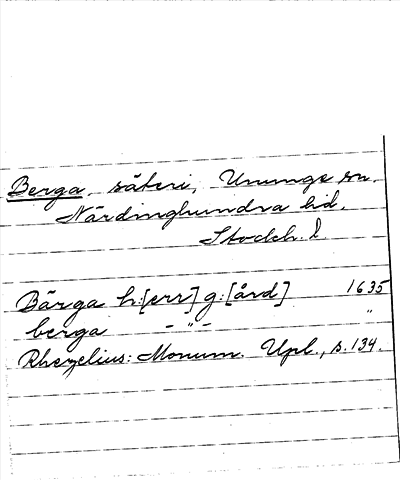 Berga, säteri, Ununge sn.
Närdinghundra hd.
Stockh. l.
Bärga h:[err] g:[ård] 1635
berga - " - "
Rhezelius: Monum. Upl., s. 134.